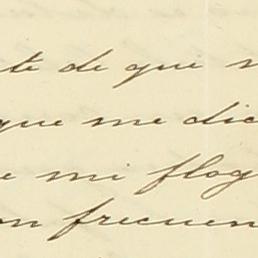 te de que
que me dic
mi flog
on frecuen